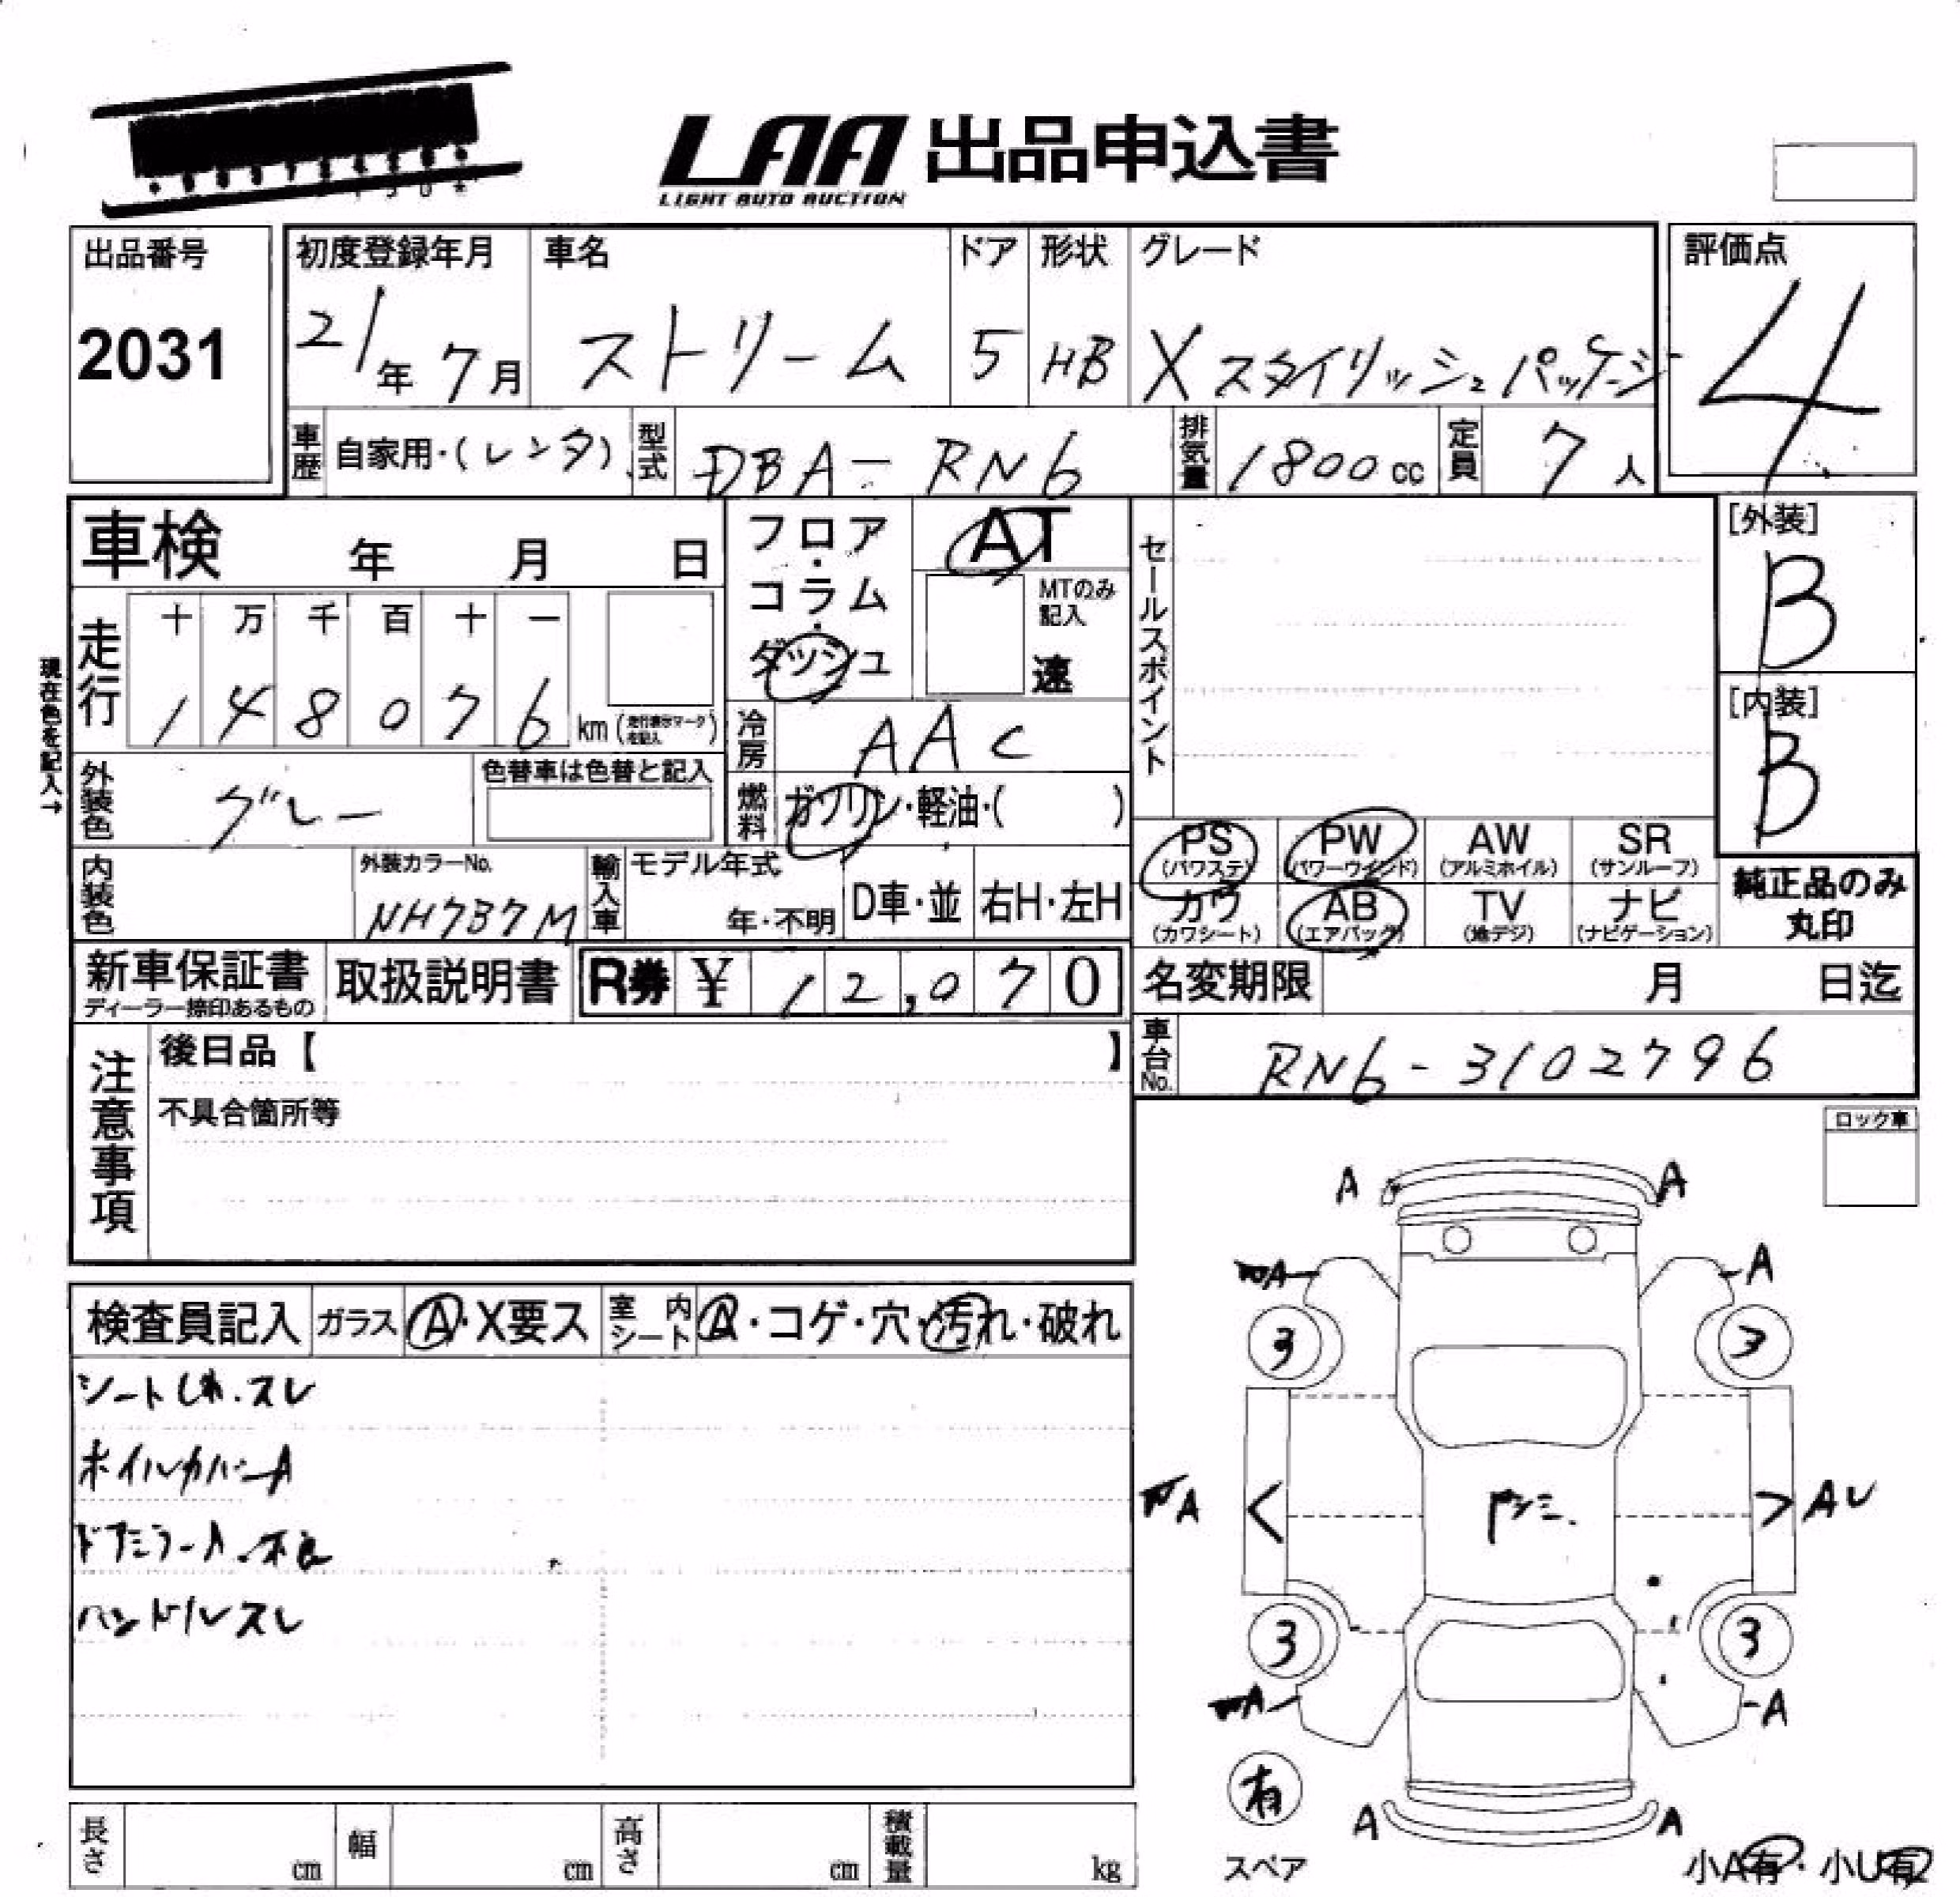 LAA 出品申込書
LIGHT AUTO AUCTION
出品番号
2031
初度登録年月
21年 7月
車名
ストリーム
ドア
5
形状
HB
グレード
X スタイリッシュパッケージ
評価点
4
車歴 自家用・(レンタ)
型式 DBA-RN6
排気量 1800cc
定員 7人
車検 年 月 日
フロア・コラム・ダッシュ
AT
MTのみ記入
速
セールスポイント
[外装]
B
[内装]
B
現在色を記入→
走行
十 万 千 百 十 一
1 4 8 0 7 6 km (走行表示マークを記入)
冷房 AAC
外装色 グレー
色替車は色替と記入
燃料 ガソリン・軽油・( )
PS (パワステ)
PW (パワーウインド)
AW (アルミホイル)
SR (サンルーフ)
カワ (カワシート)
AB (エアバック)
TV (地デジ)
ナビ (ナビゲーション)
純正品のみ丸印
内装色
外装カラーNo.
NH737M
輸入車
モデル年式
年・不明
D車・並
右H・左H
新車保証書
ディーラー捺印あるもの
取扱説明書
R券 ¥ 12,070
名変期限 月 日迄
車台No. RN6-3102796
注意事項
後日品【 】
不具合箇所等
ロック車
検査員記入
ガラス A・X要ス
室内シート A・コゲ・穴・汚れ・破れ
シートしわ.スレ
ホイルカバーA
ドアミラーA.不良
ハンドルスレ
A A
A A
3 3
A AU
3 3
A A
有
スペア
A A
小A有・小U有
長さ cm
幅 cm
高さ cm
積載量 kg